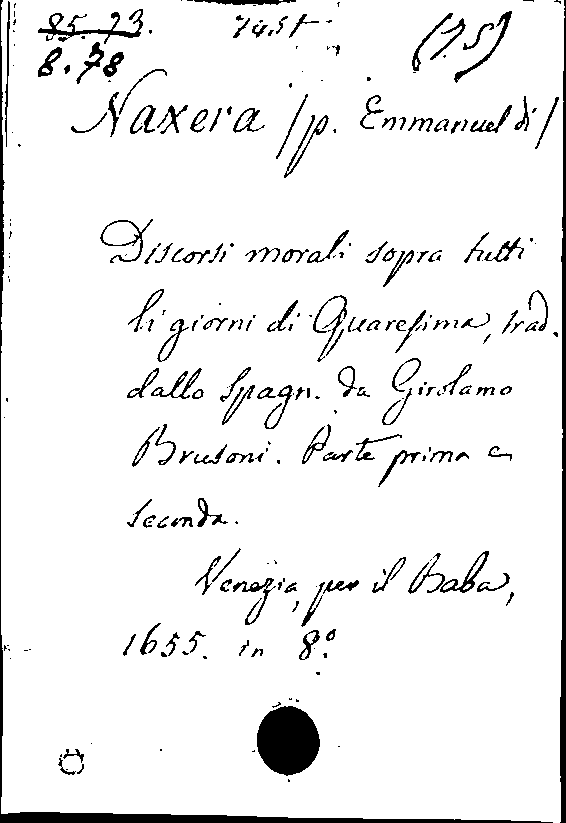 85.73. 7451 (7.S)
8.78
Naxera /p. Emmanuel di/
Discorsi morali sopra tutti
li giorni di Quaresima, trad.
dallo Spagn. da Girolamo
Brusoni. Parte prima e
seconda.
Venezia, per il Baba,
1655. in 8.º